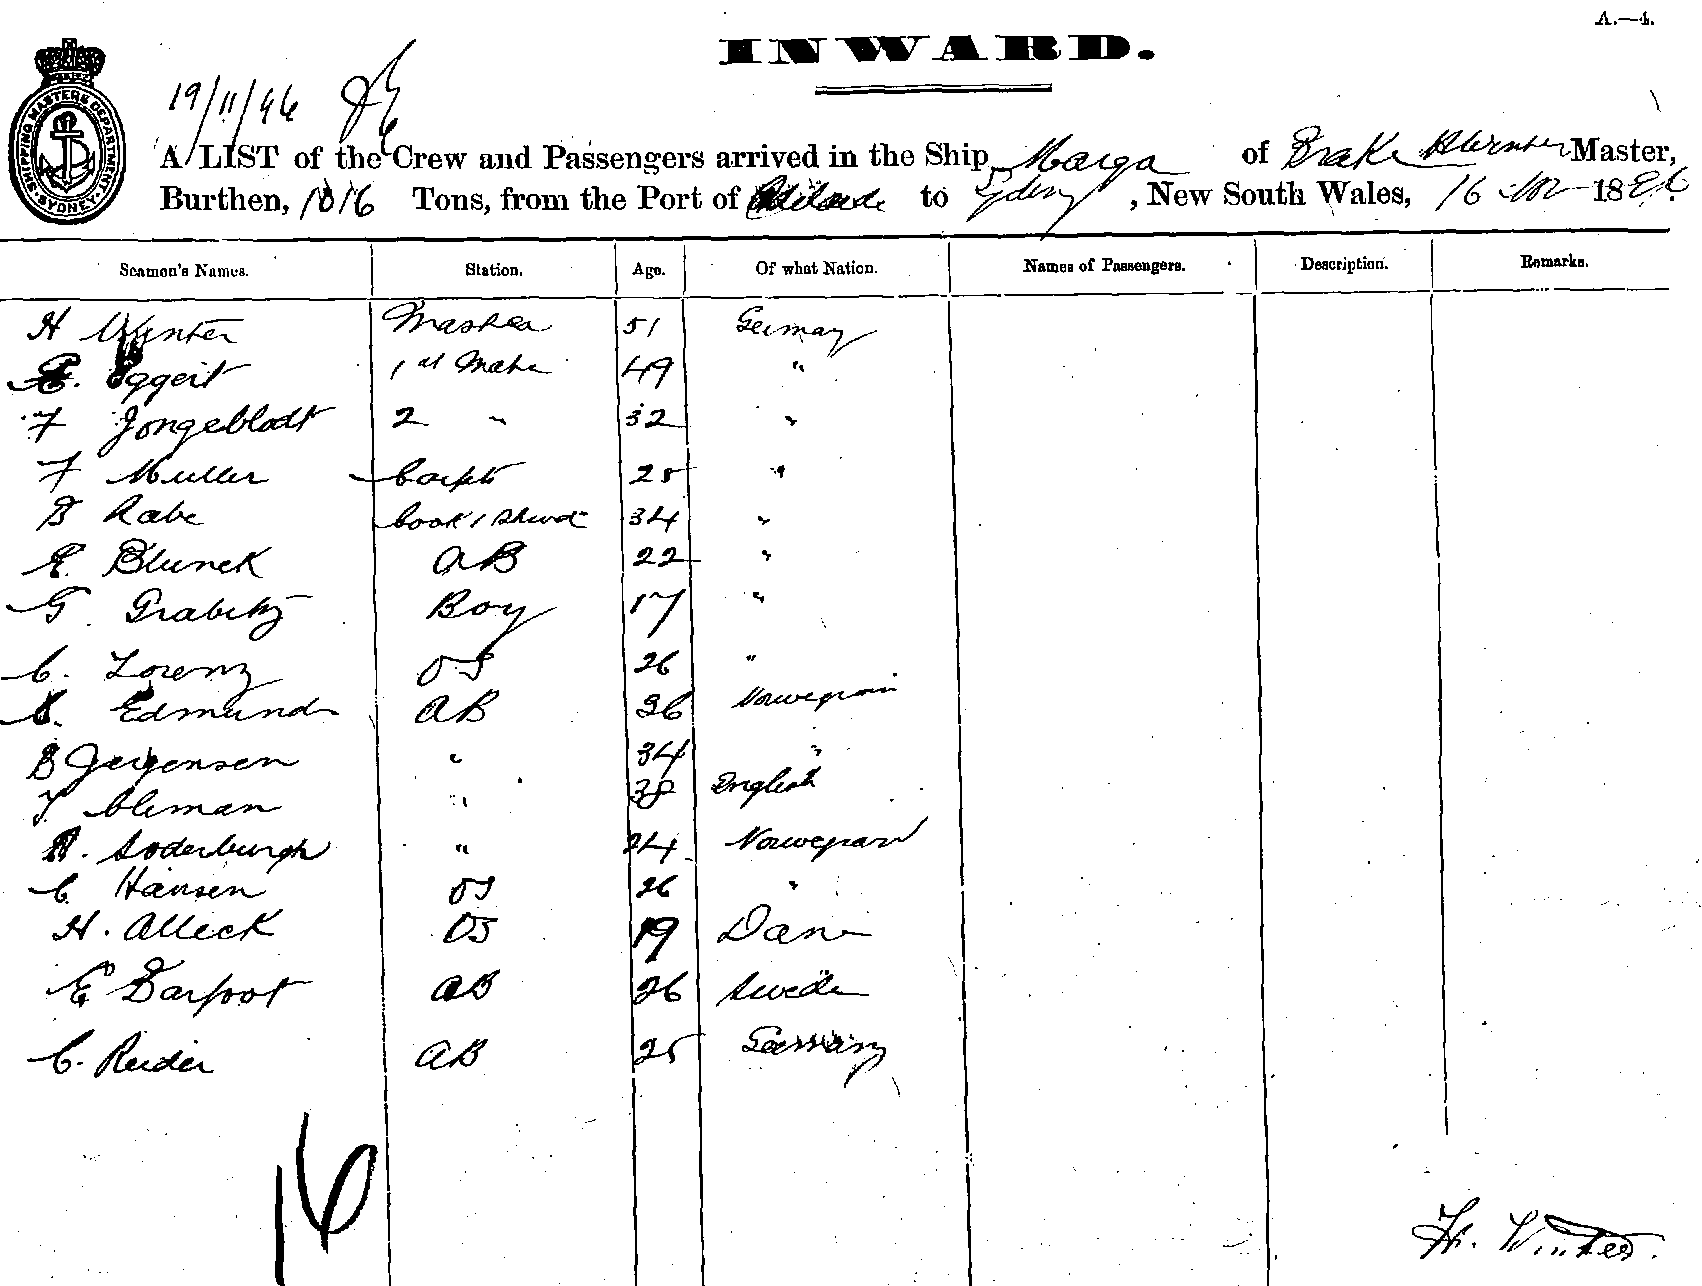 A.—4.
INWARD.
19/11/96
SHIPPING MASTERS DEPARTMENT SYDNEY
A LIST of the Crew and Passengers arrived in the Ship Marga of Brake H Winter Master,
Burthen, 1816 Tons, from the Port of Adelaide to Sydney, New South Wales, 16 Nov 1896
Seamen's Names. Station. Age. Of what Nation. Names of Passengers. Description. Remarks.
H Winter Master 51 Germany
Eggert 1st Mate 49 "
F Jongeblodt 2 " 32 "
F Muller Carpt 25 "
B Rabe Cook & Stewd 34 "
E. Blunck AB 22 "
G. Grabitz Boy 17 "
C. Lorenz OS 26 "
Edmund AB 36 Norwegian
B Jergensen " 34 "
T Cleman " 38 English
Soderburgh " 24 Norwegian
C Hansen OS 26 "
H. Alleck OS 19 Dane
E Darfoot AB 26 Swede
C. Reider AB 25 Germany
16
H. Winter.